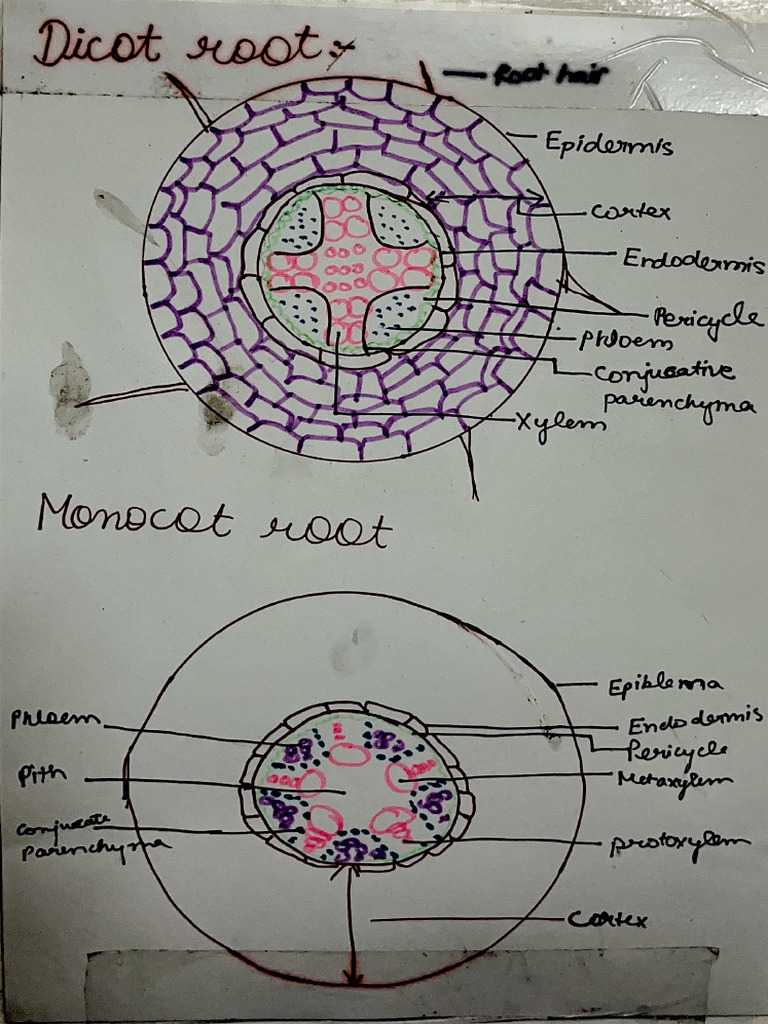 Dicot root:-
Root hair
Epidermis
Cortex
Endodermis
Pericycle
Phloem
Conjucative
parenchyma
Xylem
Monocot root
Epiblema
Phloem
Endodermis
Pericycle
Pith
Metaxylem
Conjucate
Parenchyma
protoxylem
Cortex